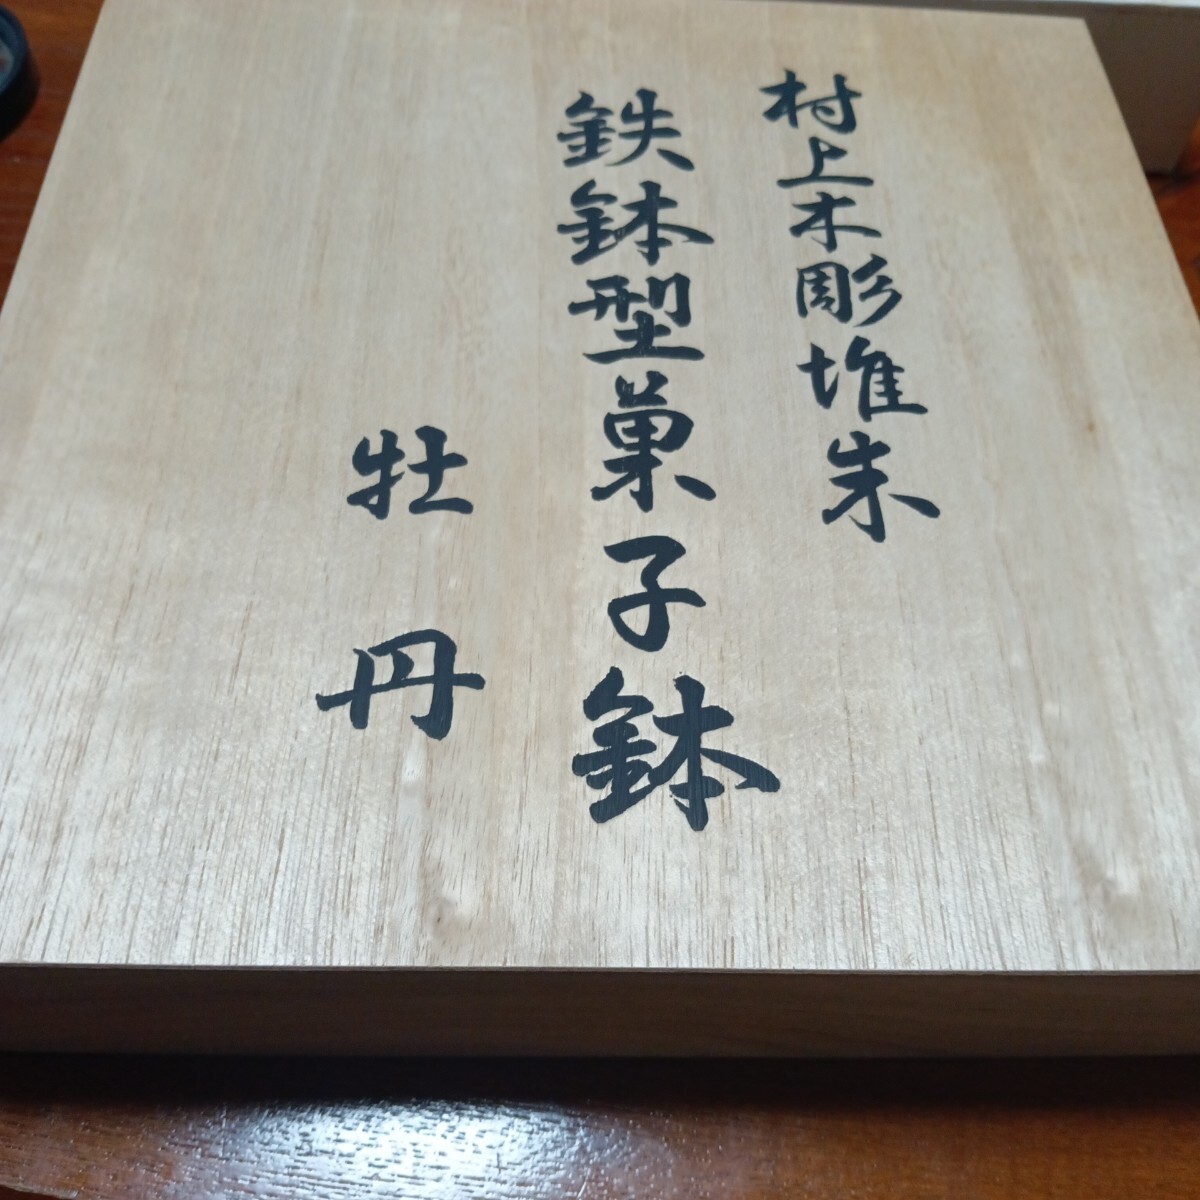 村上木彫堆朱
鉄鉢型菓子鉢
牡丹